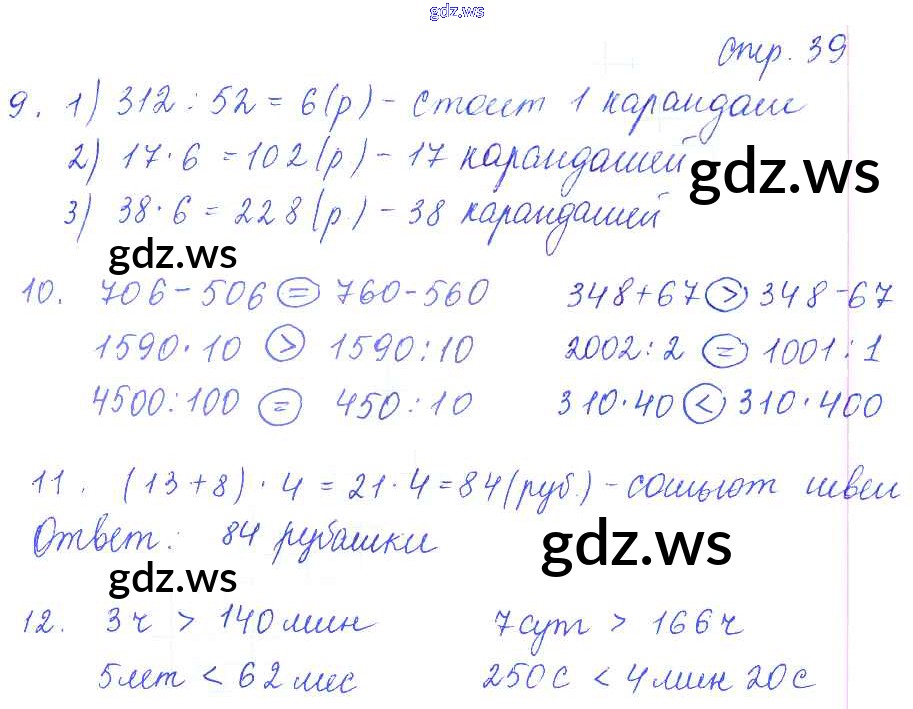 gdz.ws
стр. 39
9. 1) 312 : 52 = 6 (р) - стоит 1 карандаш
2) 17 · 6 = 102 (р) - 17 карандашей
gdz.ws
3) 38 · 6 = 228 (р.) - 38 карандашей
gdz.ws
10. 706 - 506 = 760 - 560 348 + 67 > 348 - 67
1590 · 10 > 1590 : 10 2002 : 2 = 1001 : 1
4500 : 100 = 450 : 10 310 · 40 < 310 · 400
11. (13 + 8) · 4 = 21 · 4 = 84 (руб.) - сошьют швеи
Ответ: 84 рубашки
gdz.ws
gdz.ws
12. 3 ч > 140 мин 7 сут > 166 ч
5 лет < 62 мес 250 с < 4 мин 20 с